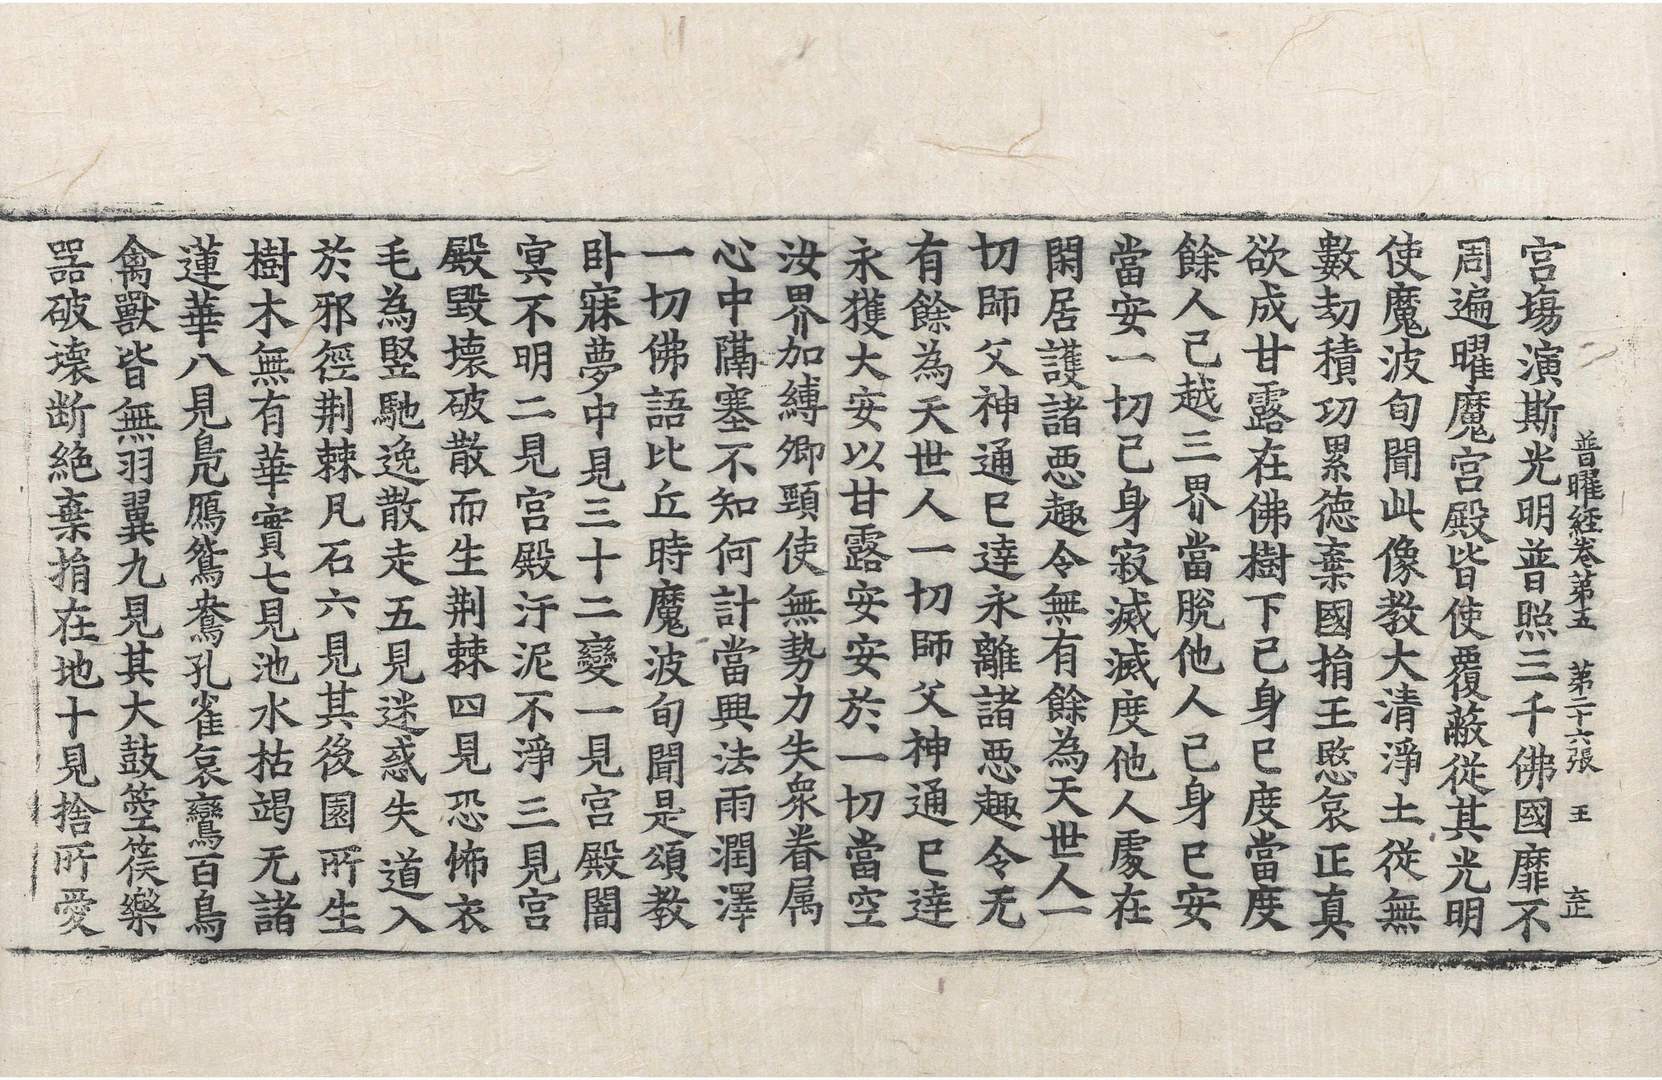 普曜經卷第五 第二十六張 王
宮塲演斯光明普照三千佛國靡不
周遍曜魔宮殿皆使覆蔽從其光明
使魔波旬聞此像教大清淨土從無
數劫積功累徳棄國捐王愍哀正真
欲成甘露在佛樹下己身已度當度
餘人已越三界當脫他人己身已安
當安一切己身寂滅滅度他人處在
閑居護諸惡趣令無有餘為天世人一
切師父神通已達永離諸惡趣令无
有餘為天世人一切師父神通已達
永獲大安以甘露安安於一切當空
汝界加縛卿頸使無勢力失衆眷属
心中隔塞不知何計當興法雨潤澤
一切佛語比丘時魔波旬聞是頌教
卧寐夢中見三十二變一見宮殿闇
冥不明二見宮殿汙泥不淨三見宮
殿毀壞破散而生荆棘四見恐怖衣
毛為竪馳逸散走五見迷惑失道入
於邪徑荆棘凡石六見其後園所生
樹木無有華實七見池水枯竭无諸
蓮華八見鳧鴈鴛鴦孔雀哀鸞百鳥
禽獸皆無羽翼九見其大鼓箜篌樂
器破壊断絶棄捐在地十見捨所愛